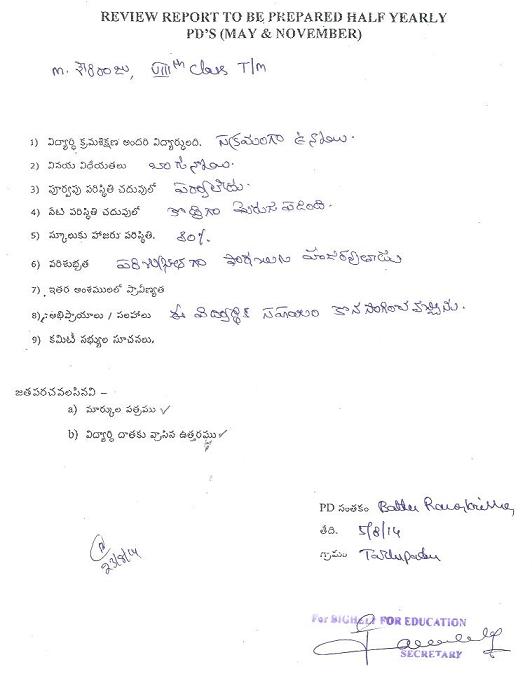 REVIEW REPORT TO BE PREPARED HALF YEARLY
PD'S (MAY & NOVEMBER)
m. VIIIth Class T/M
1) విద్యార్థి క్రమశిక్షణ అందరి విద్యార్థులది. సక్రమంగా ఉన్నాయి.
2) వినయ విధేయతలు బాగున్నాయి.
3) పూర్వపు పరిస్థితి చదువులో పర్వాలేదు.
4) నేటి పరిస్థితి చదువులో కొద్దిగా మెరుగు పడింది.
5) స్కూలుకు హాజరు పరిస్థితి. 80%.
6) పరిశుభ్రత పరిశుభ్రంగా
7) ఇతర అంశములలో ప్రావీణ్యత
8) అభిప్రాయాలు / సలహాలు ఈ విద్యార్థికి సహాయం కొనసాగించవచ్చును.
9) కమిటీ సభ్యుల సూచనలు.
జతపరచవలసినవి –
a) మార్కుల పత్రము ✓
b) విద్యార్థి దాతకు వ్రాసిన ఉత్తరము ✓
PD సంతకం
తేది. 5/8/14
గ్రామం
23/8/14
For BIGHELP FOR EDUCATION
SECRETARY